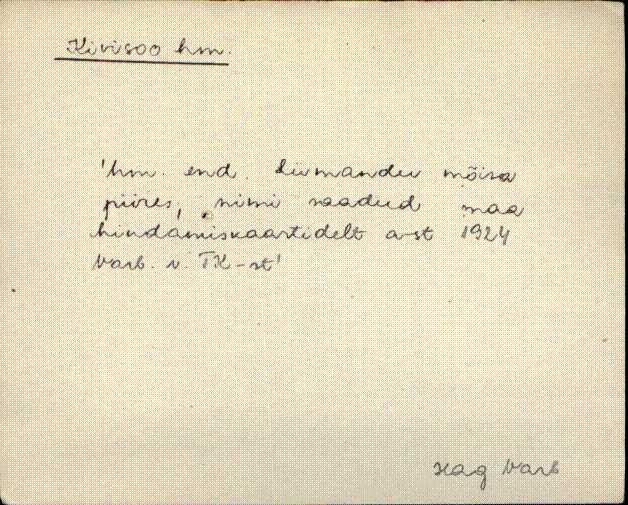 Kivisoo hm.
'hm. end. Liimandu mõisa
piires, nimi saadud maa
hindamiskaartidelt a-st 1924
Varb. v. TK-st'
Hag Varb